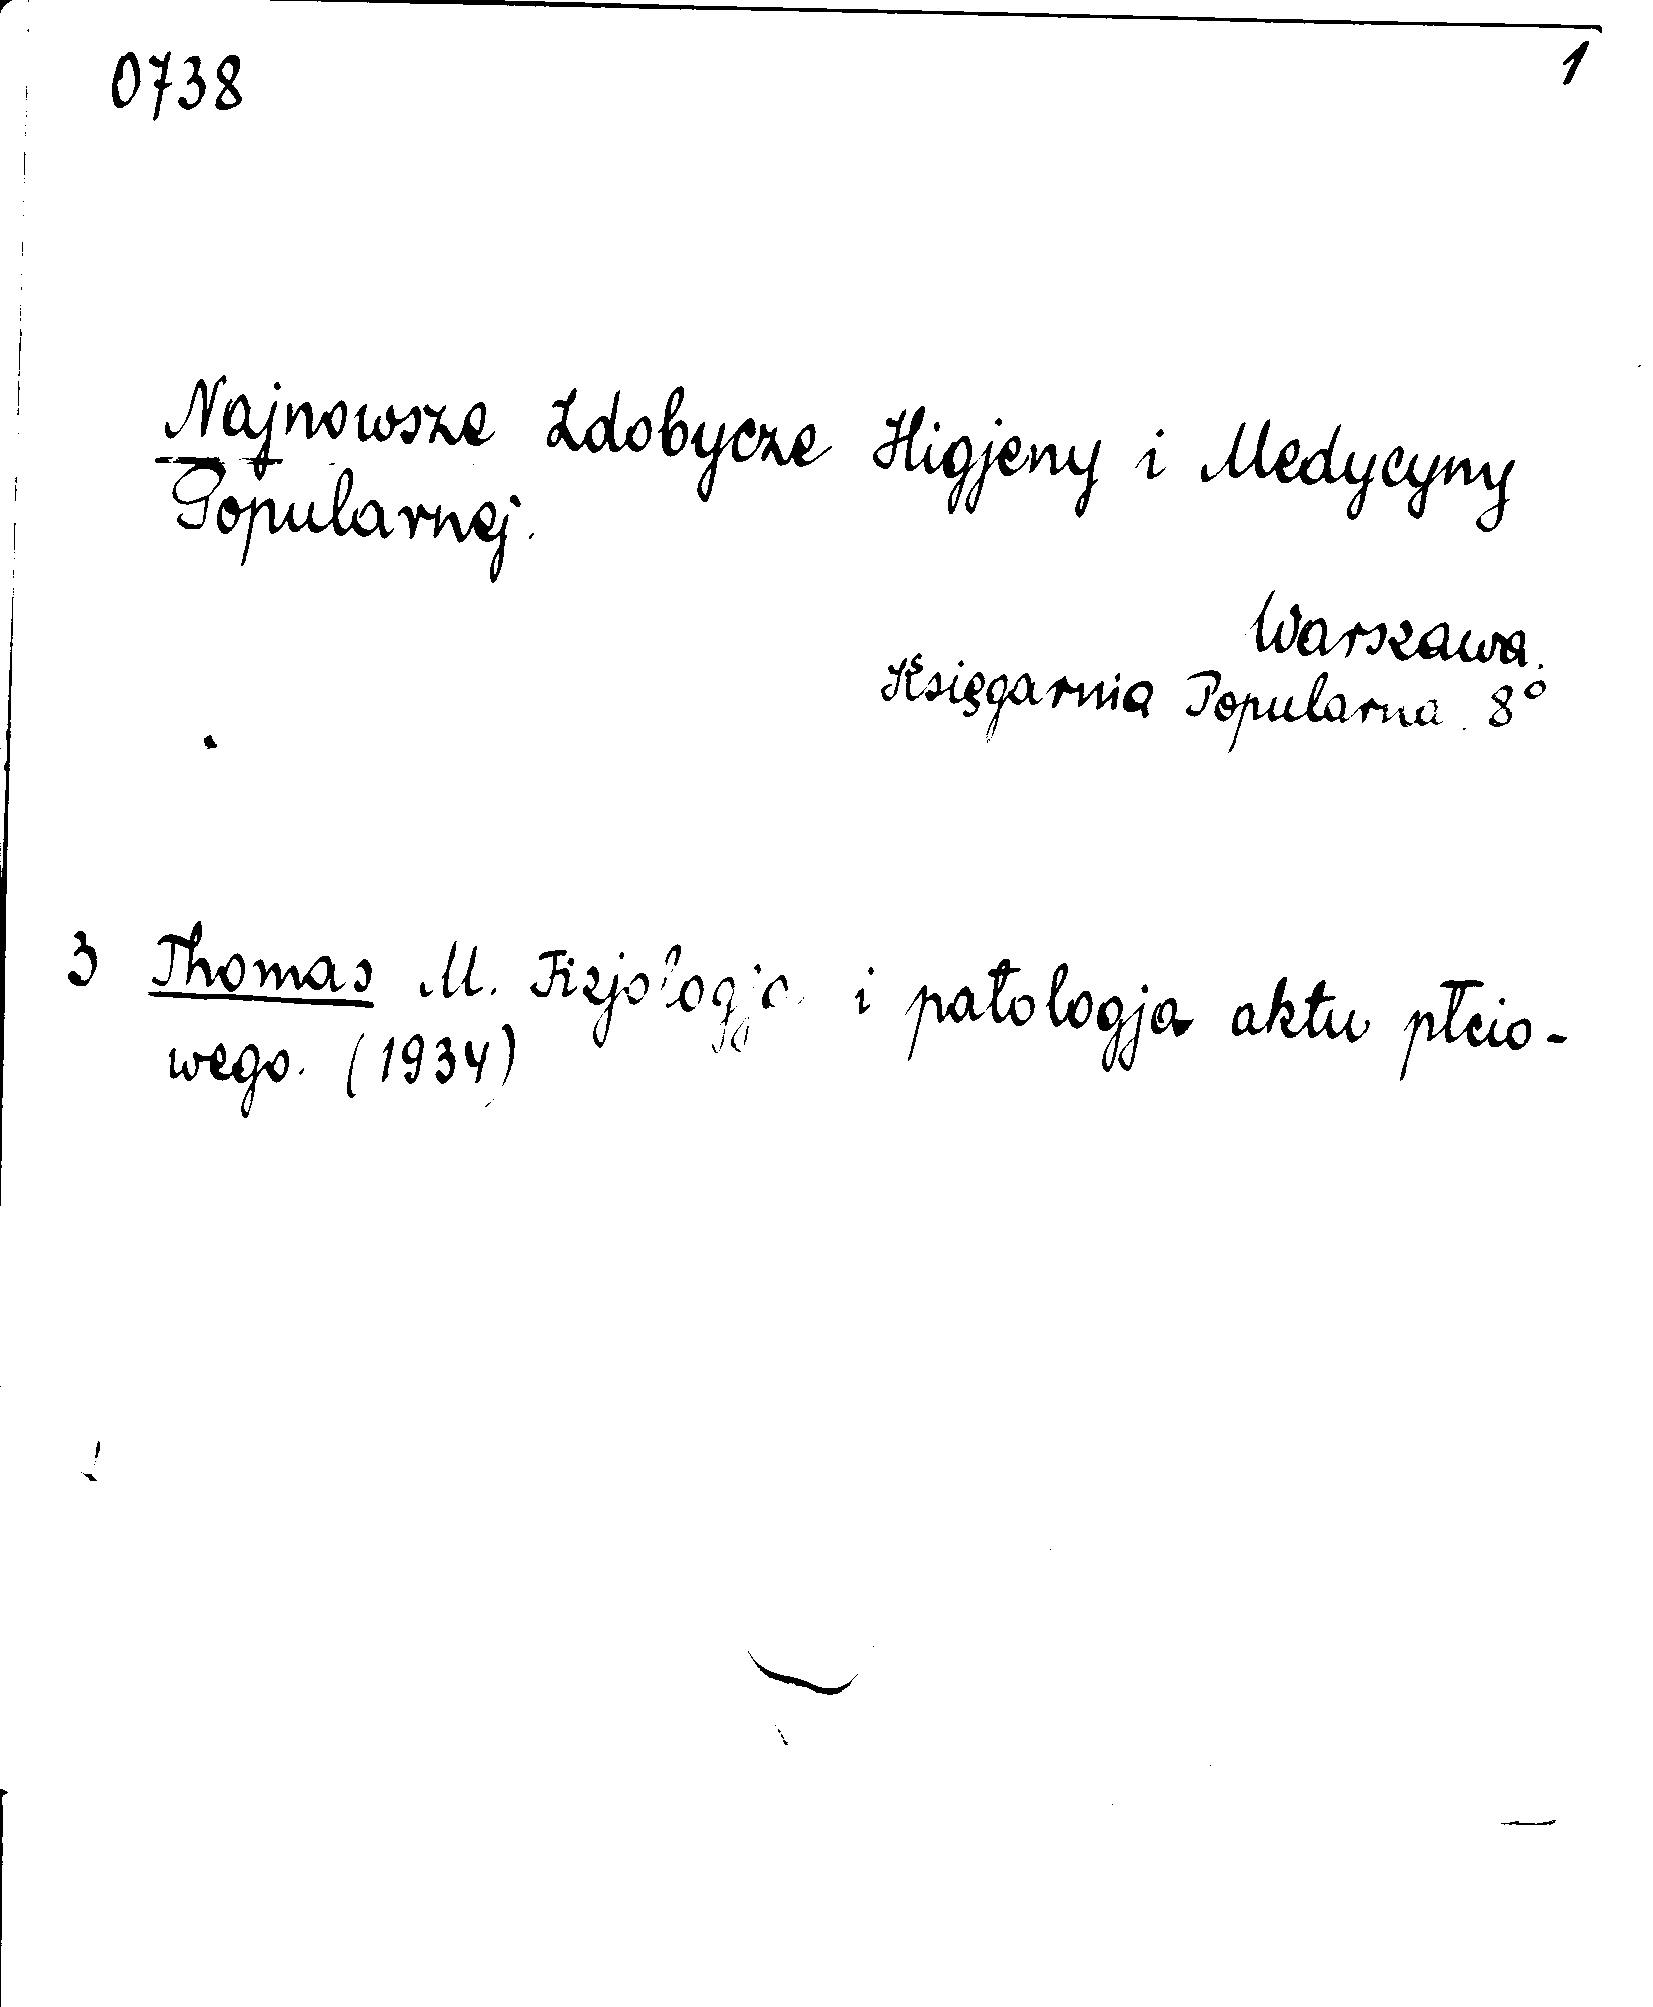 0738 1
Najnowsze Zdobycze Higjeny i Medycyny
Popularnej.
Warszawa.
Księgarnia Popularna. 8°
3 Thomas M. Fizjologja i patologja aktu płcio-
wego. (1934)